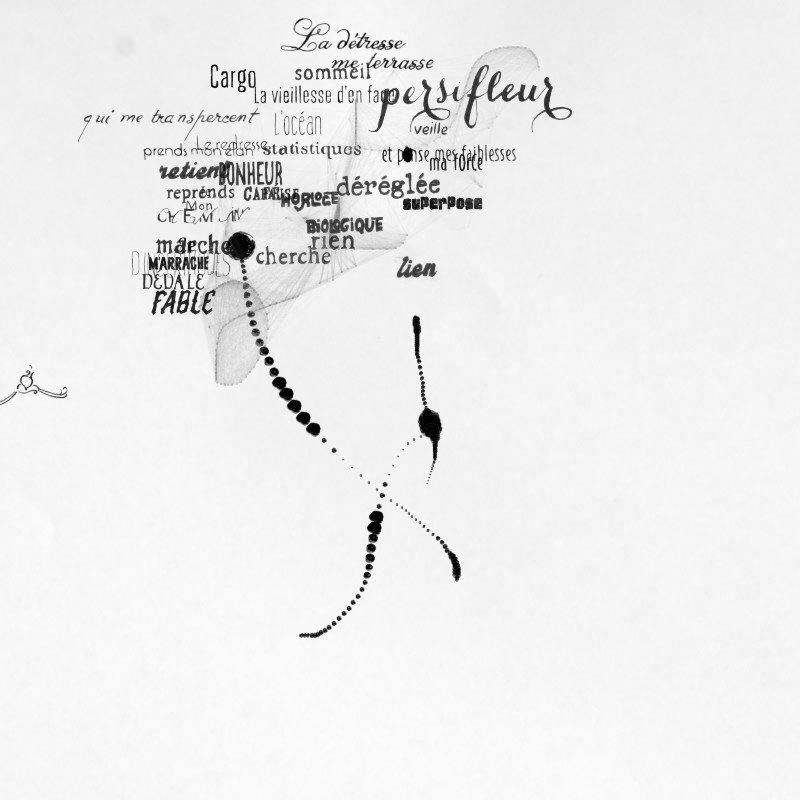 La détresse
me terrasse
Cargo sommeil
La vieillesse d'en face persifleur
qui me transpercent L'océan veille
Le redresse
prends mon élan statistiques et pense mes faiblesses
ma force
retient BONHEUR
reprends HORLOGE déréglée
Mon superpose
BIOLOGIQUE
marche rien
cherche
M'ARRACHE lien
DÉDALE
FABLE